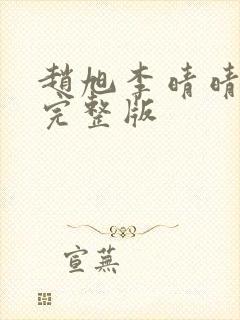 趙旭李晴晴
完整版
宣蕪